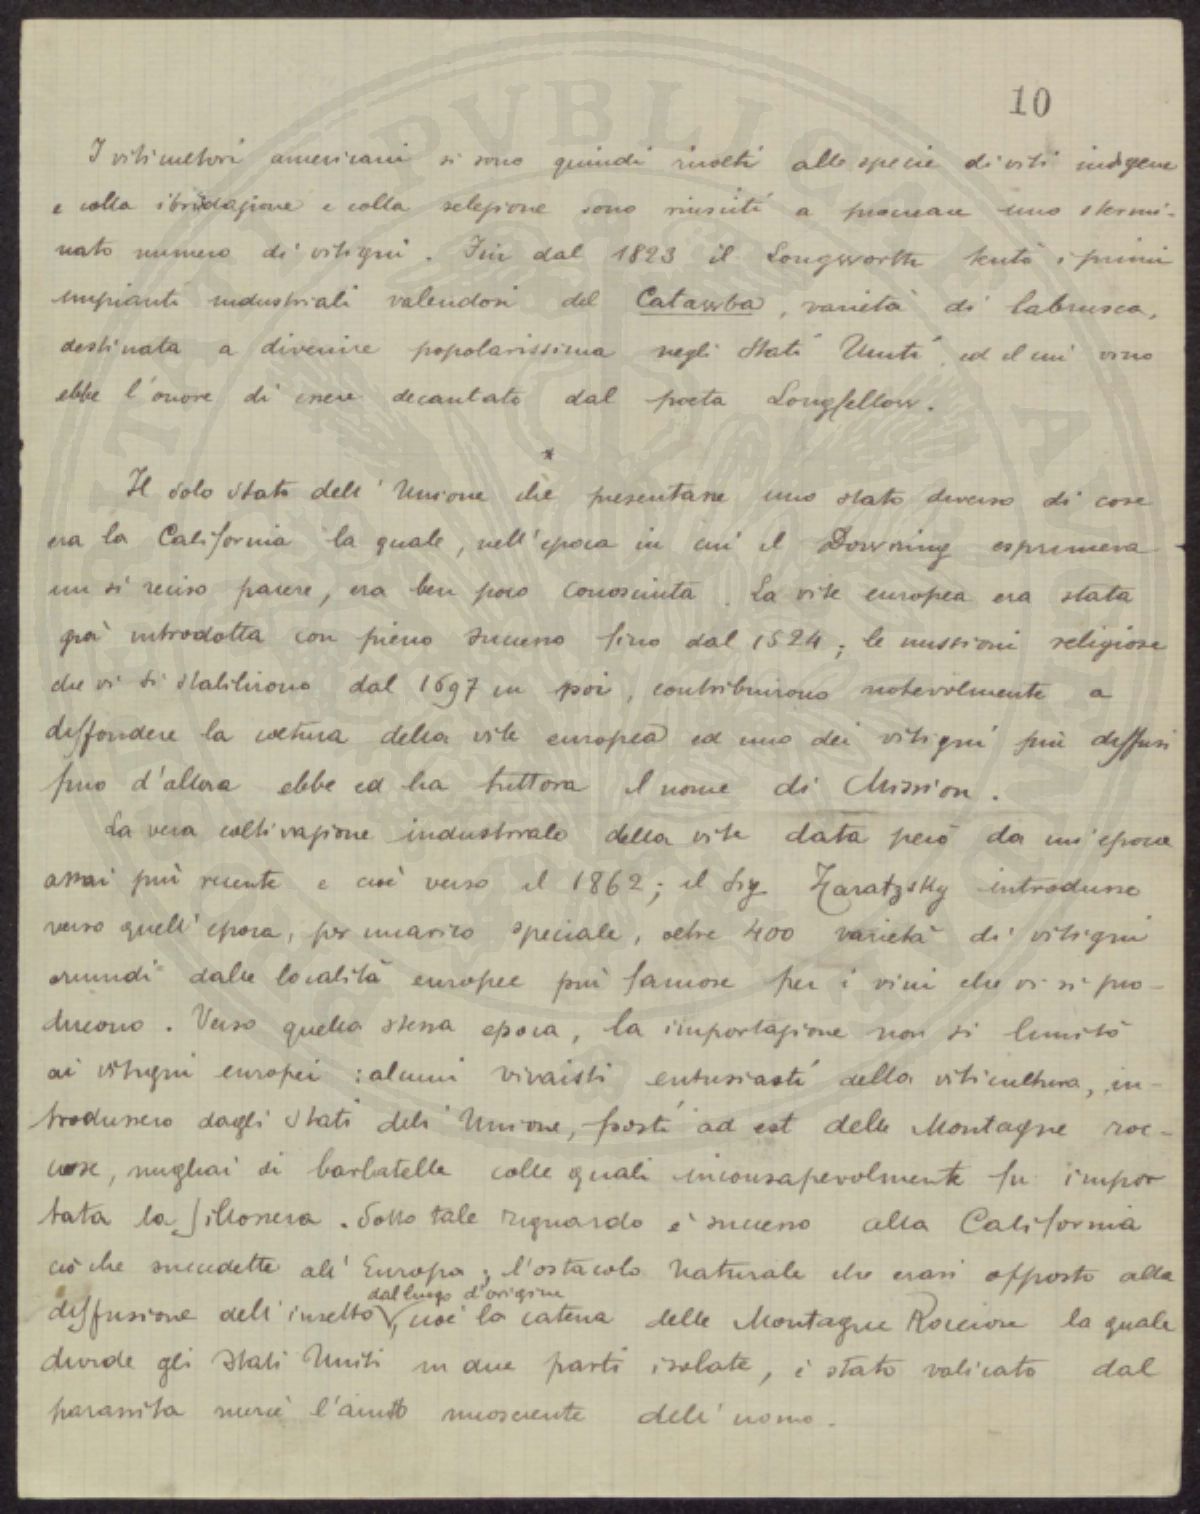 10
I viticultori americani si sono quindi rivolti alle specie di viti indigene
e colla ibridazione e colla selezione sono riusciti a procreare uno stermi-
nato numero di vitigni. Fin dal 1823 il Longworth tentò i primi
impianti industriali valendosi del Catawba, varietà di labrusca,
destinata a divenire popolarissima negli Stati Uniti ed il cui vino
ebbe l'onore di essere decantato dal poeta Longfellow.
*
Il solo Stato dell'Unione che presentasse uno stato diverso di cose
era la California la quale, nell'epoca in cui il Downing esprimeva
un sì reciso parere, era ben poco conosciuta. La vite europea era stata
già introdotta con pieno successo fino dal 1524; le missioni religiose
che vi si stabilirono dal 1697 in poi, contribuirono notevolmente a
diffondere la coltura della vite europea ed uno dei vitigni più diffusi
fino d'allora ebbe ed ha tuttora il nome di Mission.
La vera coltivazione industriale della vite data però da un'epoca
assai più recente e cioè verso il 1862; il Sig Zaratzsky introdusse
verso quell'epoca, per incarico speciale, oltre 400 varietà di vitigni
oriundi dalle località europee più famose per i vini che vi si pro-
ducono. Verso quella stessa epoca, la importazione non si limitò
ai vitigni europei: alcuni vivaisti entusiasti della viticultura, in-
trodussero dagli Stati dell'Unione, posti ad est delle Montagne roc-
ciose, migliai di barbatelle colle quali inconsapevolmente fu impor
tata la fillossera. Sotto tale riguardo è successo alla California
ciò che succedette all'Europa; l'ostacolo naturale che erasi opposto alla
dal luogo d'origine
diffusione dell'insetto, cioè la catena delle Montagne Rocciose la quale
divide gli Stati Uniti in due parti isolate, è stato valicato dal
parassita mercè l'aiuto incosciente dell'uomo.